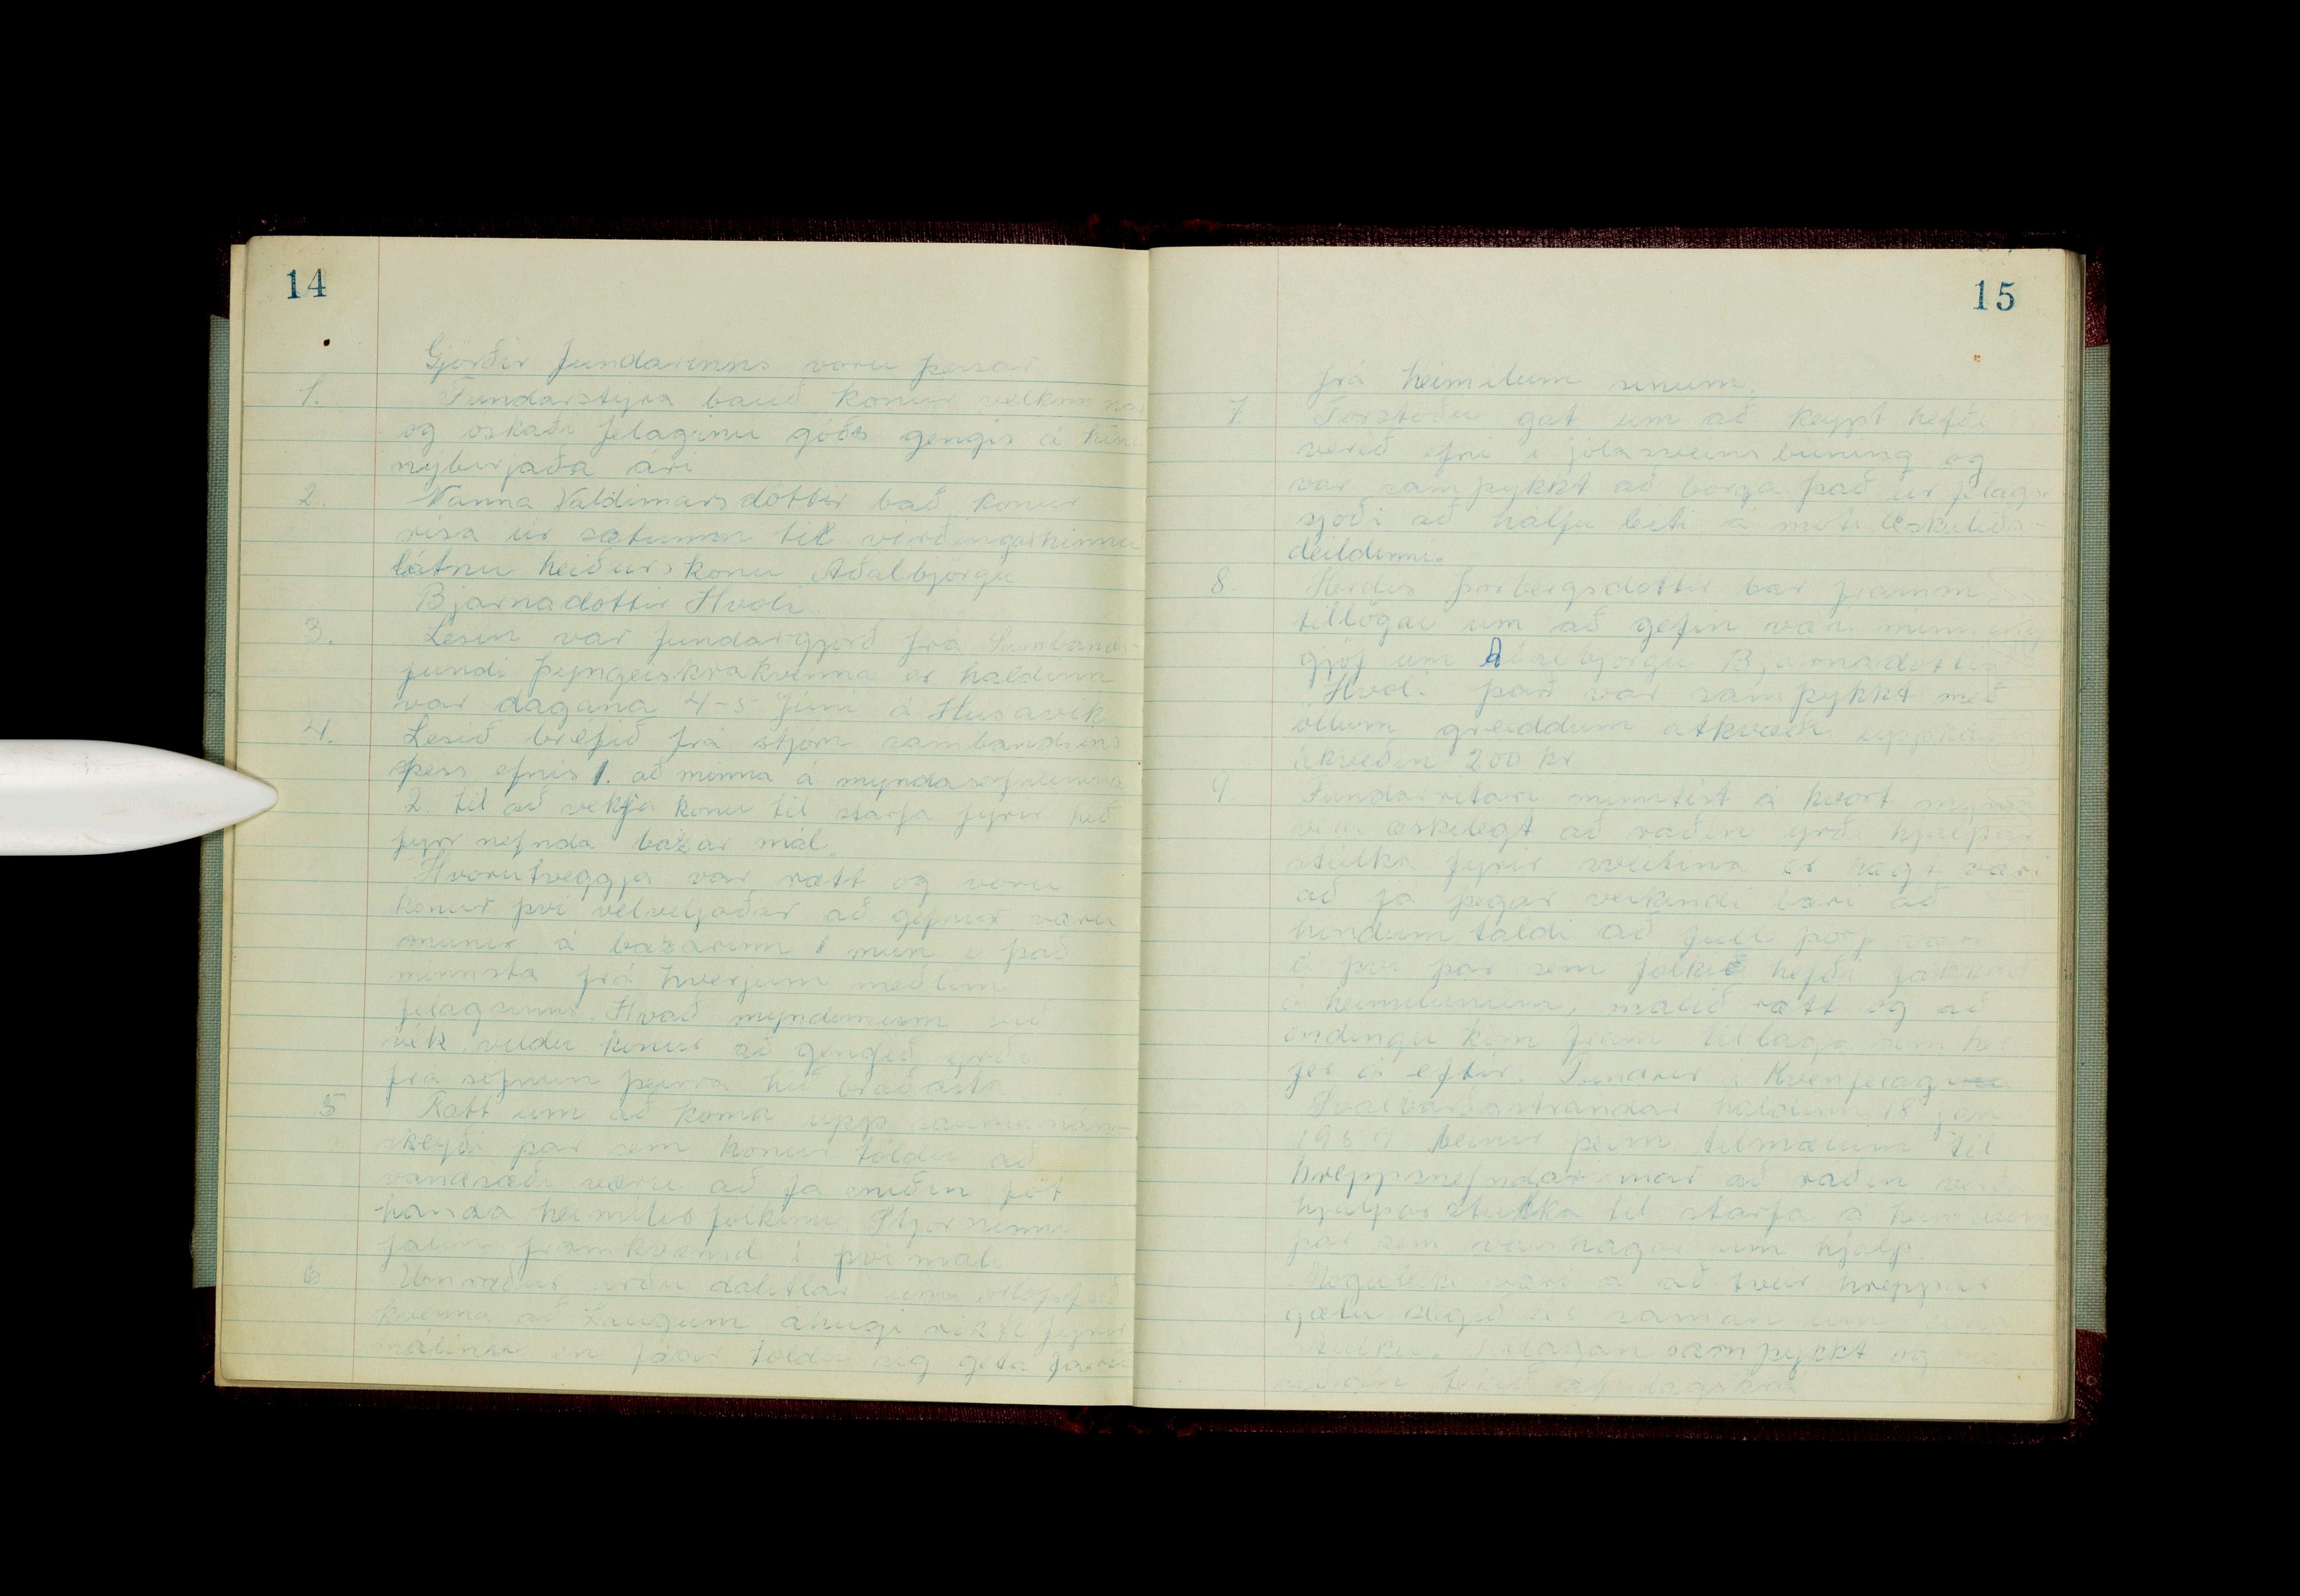 14
Gjörðir fundarinns voru þessar
1. Fundarstýra bauð konur velkomnar
og óskaði felaginu góðs gengis á hinu
nýbyrjaða ári
2. Nanna Valdimarsdóttir bað konur
risa úr sætumm til virðingar hinnu
látnu heiðurskonu Aðalbjörgu
Bjarnadóttir Hvoli.
3. Lesin var fundargjörð frá Sambands-
fundi Þyngeiskrakvenna er haldinn
var dagana 4-5 Júni á Husavik
4. Lesið bréfið frá stjorn sambandsins
þess efnis 1. að minna á myndasöfnunina
2. til að vekja konu til starfa fyrir hið
fyrr nefnda bazar mál.
Hvorutveggja var rætt og voru
konur því velviljaðar að gefnir væru
munir á bazarinn 1 mun i það
minnsta frá hverjum meðlim
félagsinns. Hvað myndunum við
vék vildu konur að gengið yrði
frá söfnun þeirra hið bráðasta
5 Rætt um að koma upp sauma nám-
skeyði þar sem konur töldu að
vandræði væru að fá sniðin föt
handa heimilis folkinu. Stjorninni
falin framkvæmd i þvi mali.
6 Umræður urðu dalitlar um orlof
kvenna að Laugum áhugi rikti fyrir
málinu en fáar töldu sig geta farið
15
frá heimilum sinum.
7. Forstöðu gat um að keypt hefði
verið efni i jólasveins buning og
var samþykkt að borga það ur felags
sjóði að halfu leiti á moti Æskulíðs-
deildinni.
8. Herdis Þorbergsdottir bar framm
tillögu um að gefin væri minning
gjöf um Aðalbjorgu Bjarnadottir
Hvoli það var samþykkt með
öllum greiddum atkvæð upphæð
ákveðin 200 kr
9. Fundarritari minntist á hvort
væri æskilegt að raðin yrði hjalpar
stulka fyrir sveitina er hægt væri
að fá þegar veikindi bæri að
höndum taldi að full þörf væri
á þvi þar sem fólkið hefði fækkað
á heimilunum, málið rætt og að
endingu kom fram tillaga sem hér
fer á eftir. Fundur i Kvenfelagi
Svalbarðsstrandar haldinn 18 jan
1959 beinir þeim tilmælum til
hreppsnefndarinnar að ráðin verði
hjalparstulka til starfa á heimilum
þar sem vanhagar um hjálp.
Moguleiki væri á að tveir hreppar
gætu slegið sér saman um
stulku. Tillagan samþykkt og